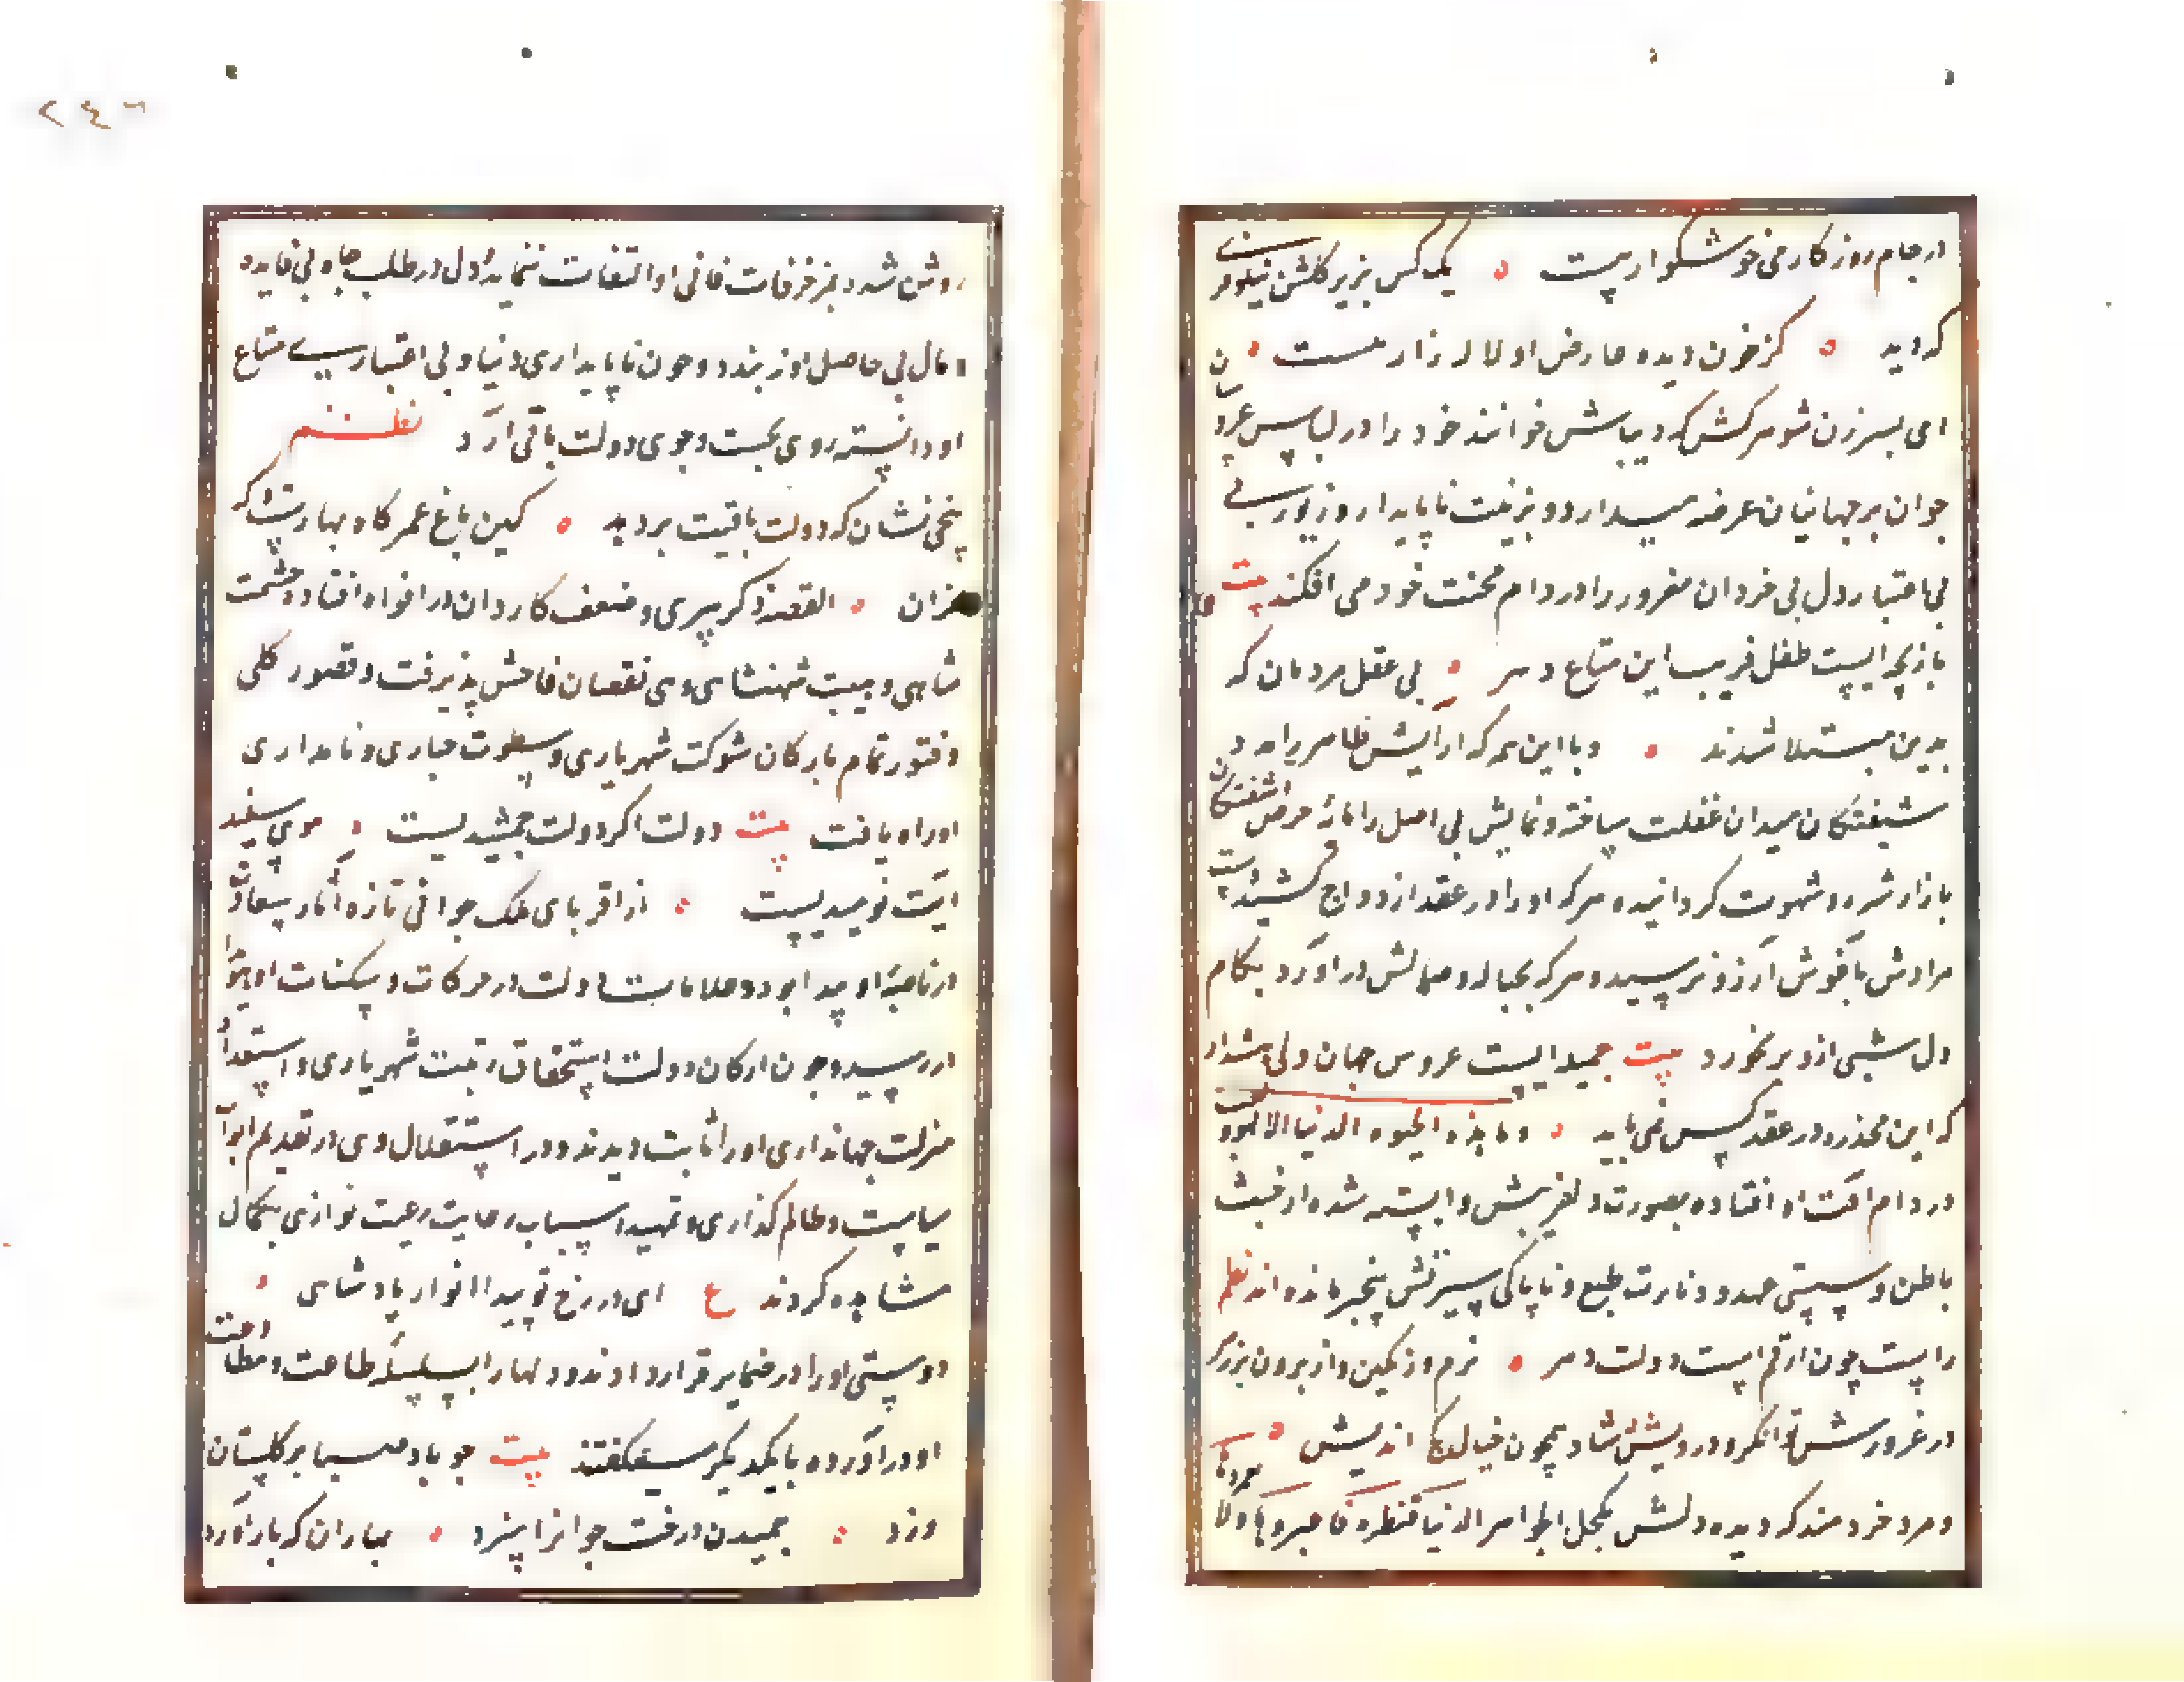 در جام روزگار می خوشگوار نیست ه یک کس بزیر گلشن نیلوفری
که دید ه کز خون دیده عارض او لاله زار نیست ه
ای پسر زن شوهر کش که دنیاش خوانند خود را در لباس عروسان
جوان بر جهانیان عرضه میدارد و بزینت ناپایدار و زیور
بی اعتبار دل بی خردان مغرور را در دام محنت خود می افکند بیت
بازیچه ایست طفل فریب این متاع دهر ه بی عقل مردمان که
بدین مبتلا شدند ه و با این همه که آرایش ظاهر را
شیفتگان میدان غفلت ساخته و نمایش بی اصل را مایه حرص آشفتگان
بازار شره و شهوت گردانیده هر که او را در عقد ازدواج کشید دست
مرادش بآغوش آرزو نرسید و هر که بحباله وصالش درآورد بکام
دل شبی ازو بر نخورد بیت جمیله ایست عروس جهان ولی هشدار
که این مخدره در عقد کس نمی آید ه وما هذه الحیوة الدنیا الا لهو
در دام آفت او افتاده بصورت دلفریبش وابسته شده از خبث
باطن و سستی عهد و دنائت طبع و ناپاکی سیرتش بیخبر مانده اند نظم
راست چون ارقم است دولت دهر ه نرم و رنگین و از درون
در غرورش توانگر و درویش شاد همچون خیال گنج اندیش ه
و مرد خردمند که دیده دلش بکحل الجواهر الدنیا قنطرة فاعبروها ولا تعمروها
روشن شد بمزخرفات فانی او التفات ننماید و دل در طلب جاه بی فایده
و مال بی حاصل او نبندد و چون ناپایداری دنیا و بی اعتباری متاع
او دانسته روی بجست و جوی دولت باقی آرد نظم
بیخی نشان که دولت باقیت بر دهد ه کین باغ عمر گاه بهارست و گه
خزان ه القصه ذکر پیری و ضعف کاردان در افواه افتاد و حشمت
شاهی و هیبت شهنشاهی وی نقصان فاحش پذیرفت و قصور کلی
و فتور تمام بارکان شوکت شهریاری و سطوت جباری و نامداری
او راه یافت بیت دولت اگر دولت جمشیدیست ه موی سفید
آیت نومیدیست ه از اقربای ملک جوانی تازه آثار سعادت
در ناصیه او پیدا بود و علامات دولت در حرکات و سکنات او هویدا
در رسید و چون ارکان دولت استحقاق رتبت شهریاری و استعداد
منزلت جهانداری او را ثابت دیدند و در استقلال وی در تقدیم ابواب
سیاست و ظالم گدازی و تمهید اسباب رعایت رعیت نوازی بکمال
مشاهده کردند ع ای در رخ تو پیدا انوار پادشاهی ه
دوستی او را در ضمایر قرار دادند و دلها را بسلسله طاعت و مطاوعت
او درآورده با یکدیگر میگفتند بیت چو باد صبا بر گلستان
وزد ه چمیدن درخت جوان را سزد ه بهاران که باد آورد